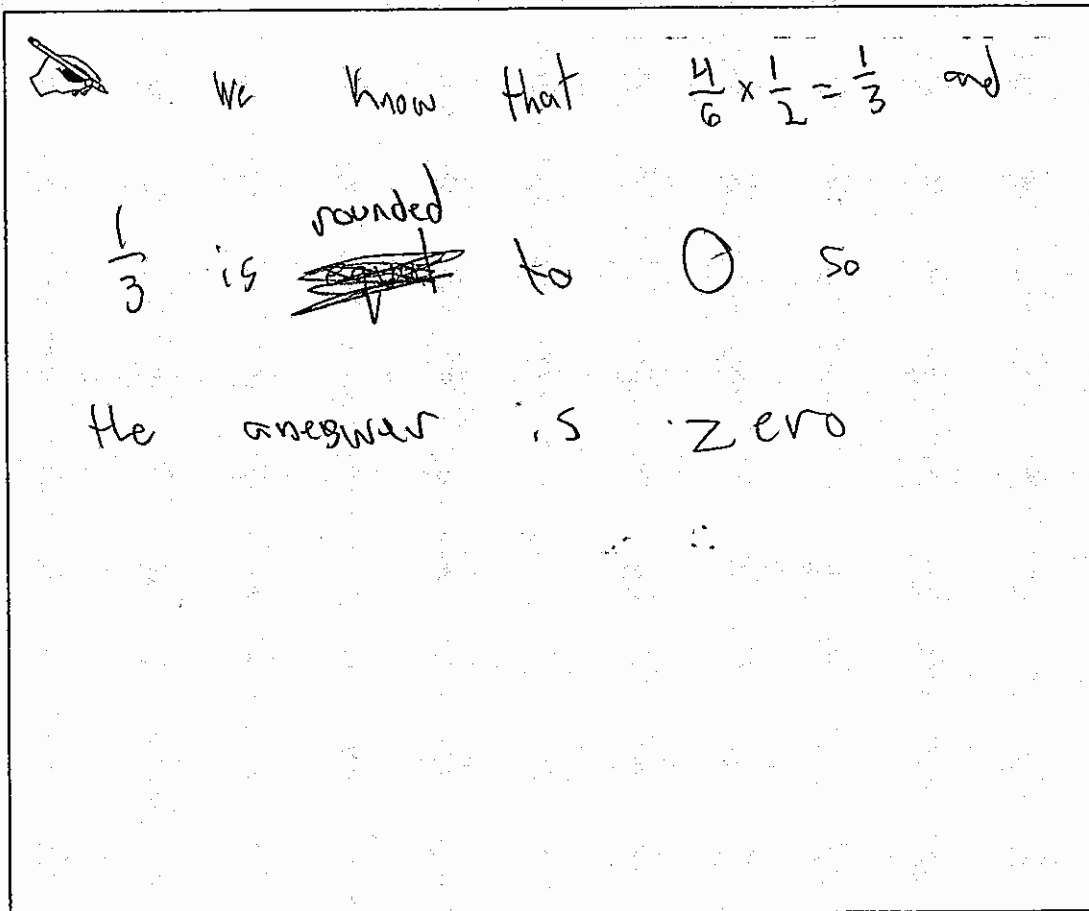 We know that 4/6 × 1/2 = 1/3 and
1/3 is rounded to 0 so
the anegwer is zero